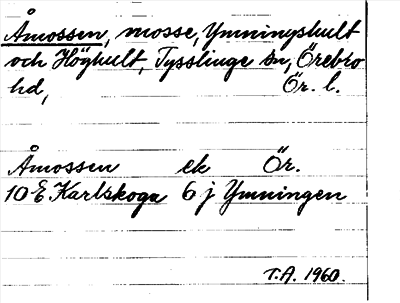 Åmossen, mosse, Ymningshult
och Höghult, Tysslinge sn, Örebro
hd, Ör. l.
Åmossen ek Ör.
10 E Karlskoga 6 j Ymningen
T.A. 1960.